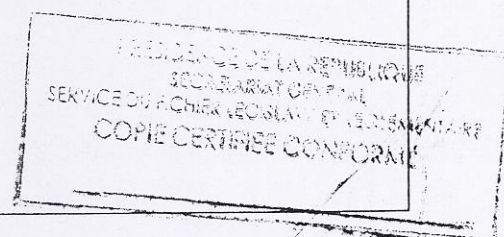 PRESIDENCE DE LA REPUBLIQUE
SECRETARIAT GENERAL
SERVICE DU FICHIER LEGISLATIF ET REGLEMENTAIRE
COPIE CERTIFIEE CONFORME